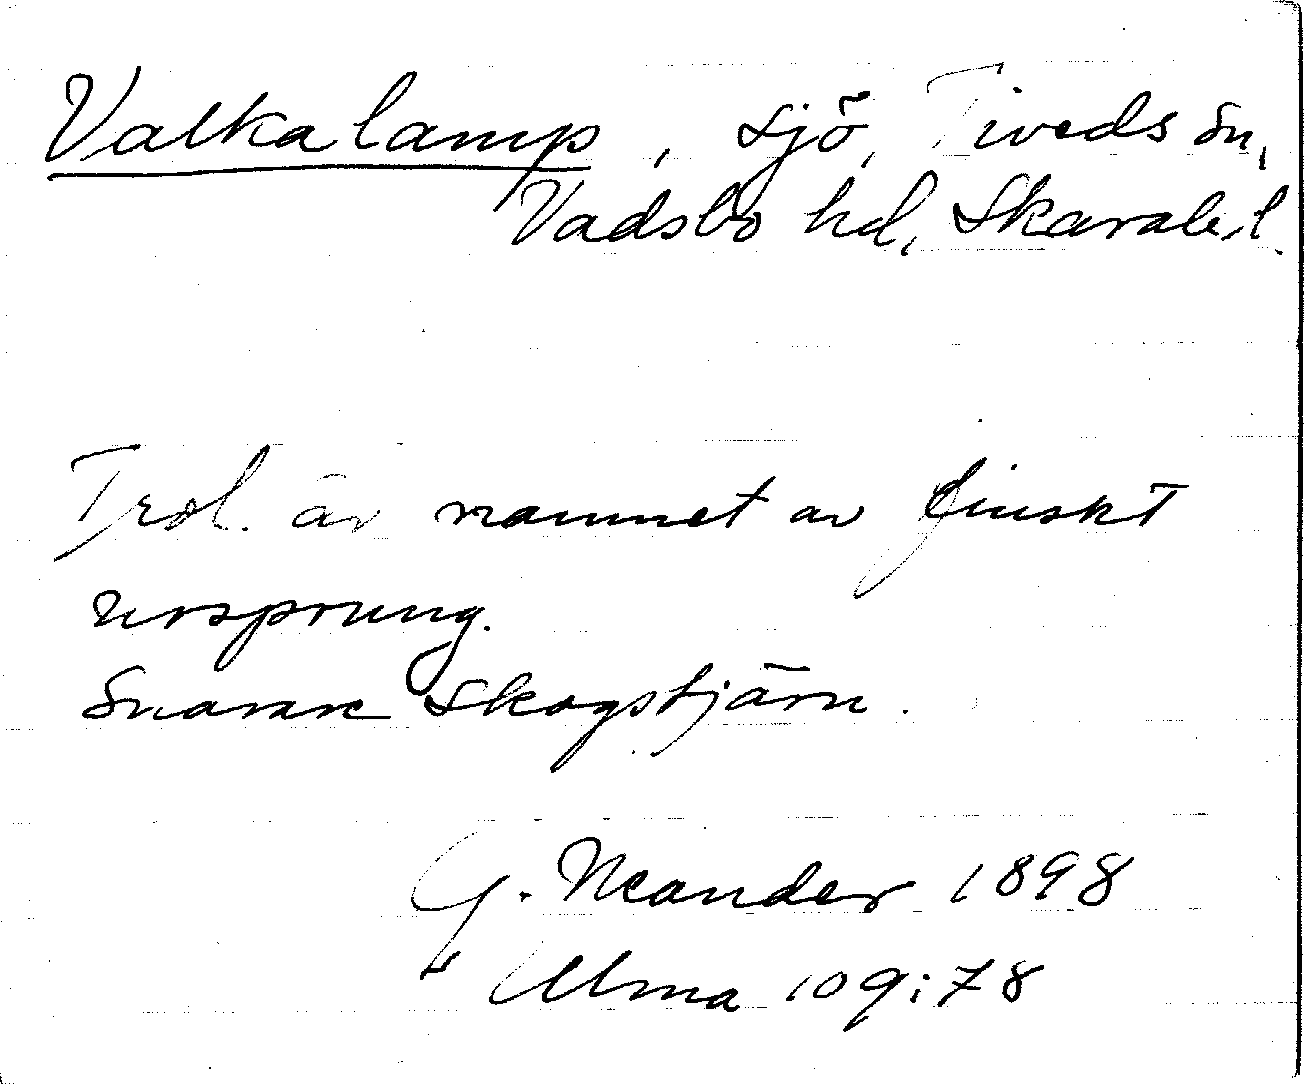 Valkalamp, sjö, Tiveds sn,
Vadsbo hd, Skarab. l.
Trol. är namnet av finskt
ursprung.
Snarare Skogstjärn.
G. Neander 1898
Ulma 109:78